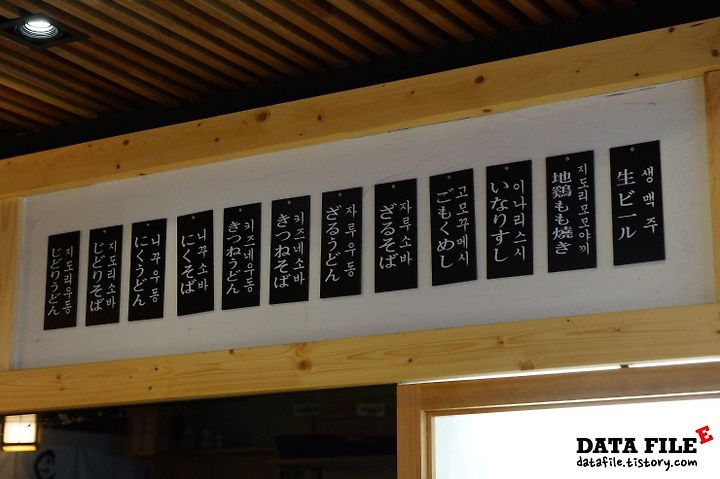 지도리우동
じどりうどん
지도리소바
じどりそば
니꾸우동
にくうどん
니꾸소바
にくそば
키즈네우동
きつねうどん
키즈네소바
きつねそば
자루우동
ざるうどん
자루소바
ざるそば
고모꾸메시
ごもくめし
이나리스시
いなりすし
지도리모모야끼
地鶏もも焼き
생맥주
生ビール
DATA FILE E
datafile.tistory.com